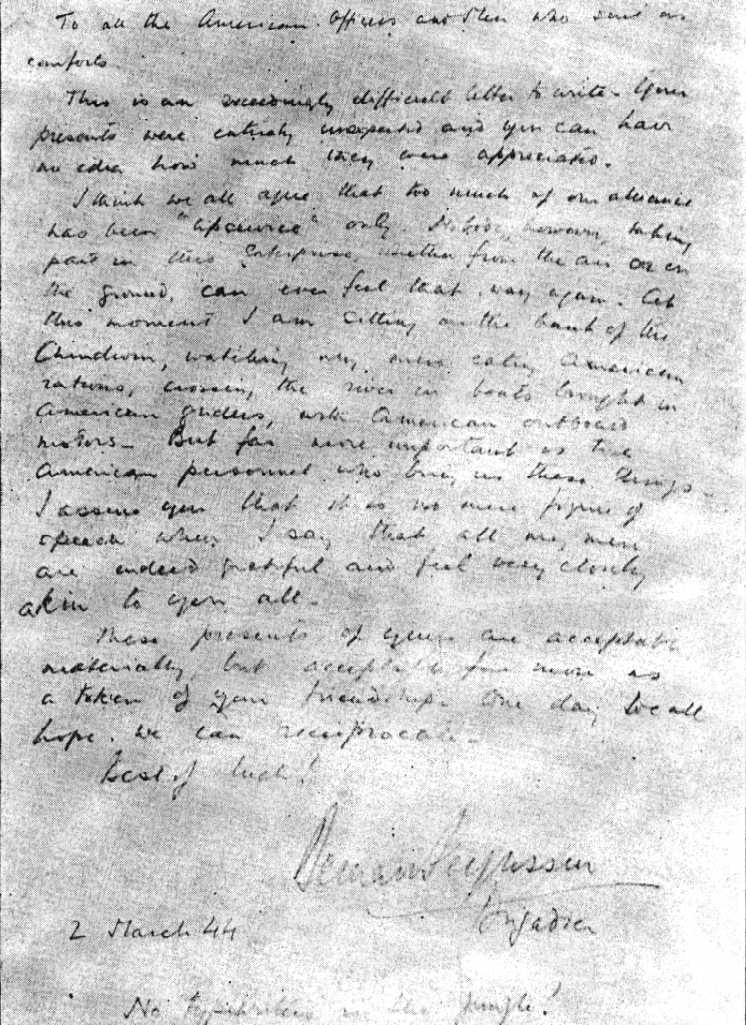 To all the American Officers and Men who sent us
comforts.
This is an exceedingly difficult letter to write. Your
presents were entirely unexpected and you can have
no idea how much they were appreciated.
I think we all agree that too much of our alliance
has been "lipservice" only. Nobody, however, taking
part in this Enterprise, whether from the air or on
the ground, can ever feel that way again. At
this moment I am sitting on the bank of the
Chindwin, watching my men eating American
rations, crossing the river in boats brought in
American gliders, with American outboard
motors. But far more important is the
American personnel who bring us these things.
I assure you that it is no mere figure of
speech when I say that all my men
are indeed grateful and feel very closely
akin to you all.
These presents of yours are acceptable
materially, but acceptable far more as
a token of your friendship. One day we all
hope we can reciprocate.
Best of luck!
Bernard Fergusson
Brigadier
2 March 44
No typewriters in the jungle!